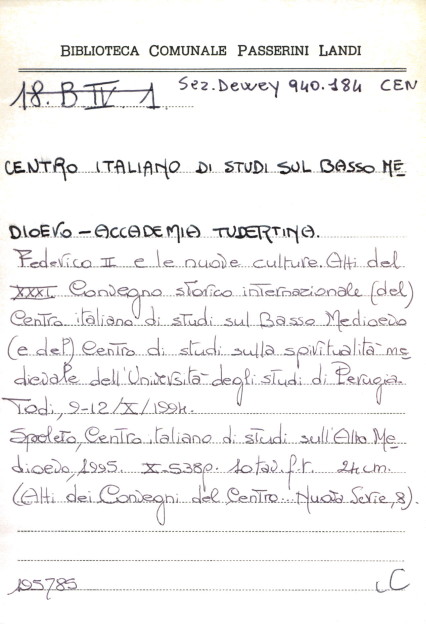 BIBLIOTECA COMUNALE PASSERINI LANDI
18. B IV. 1 Sez. Dewey 940.184 CEN
CENTRO ITALIANO DI STUDI SUL BASSO ME
DIOEVO - ACCADEMIA TUDERTINA.
Federico II e le nuove culture. Atti del
XXXI Convegno storico internazionale (del)
Centro italiano di studi sul Basso Medioevo
(e del) Centro di studi sulla spiritualità me
dievale dell'Università degli studi di Perugia.
Todi, 9-12/X/1994.
Spoleto, Centro italiano di studi sull'Alto Me
dioevo, 1995. X-538p. 10 tav. f.t. 24 cm.
(Atti dei Convegni del Centro... Nuova Serie, 8).
195785 C